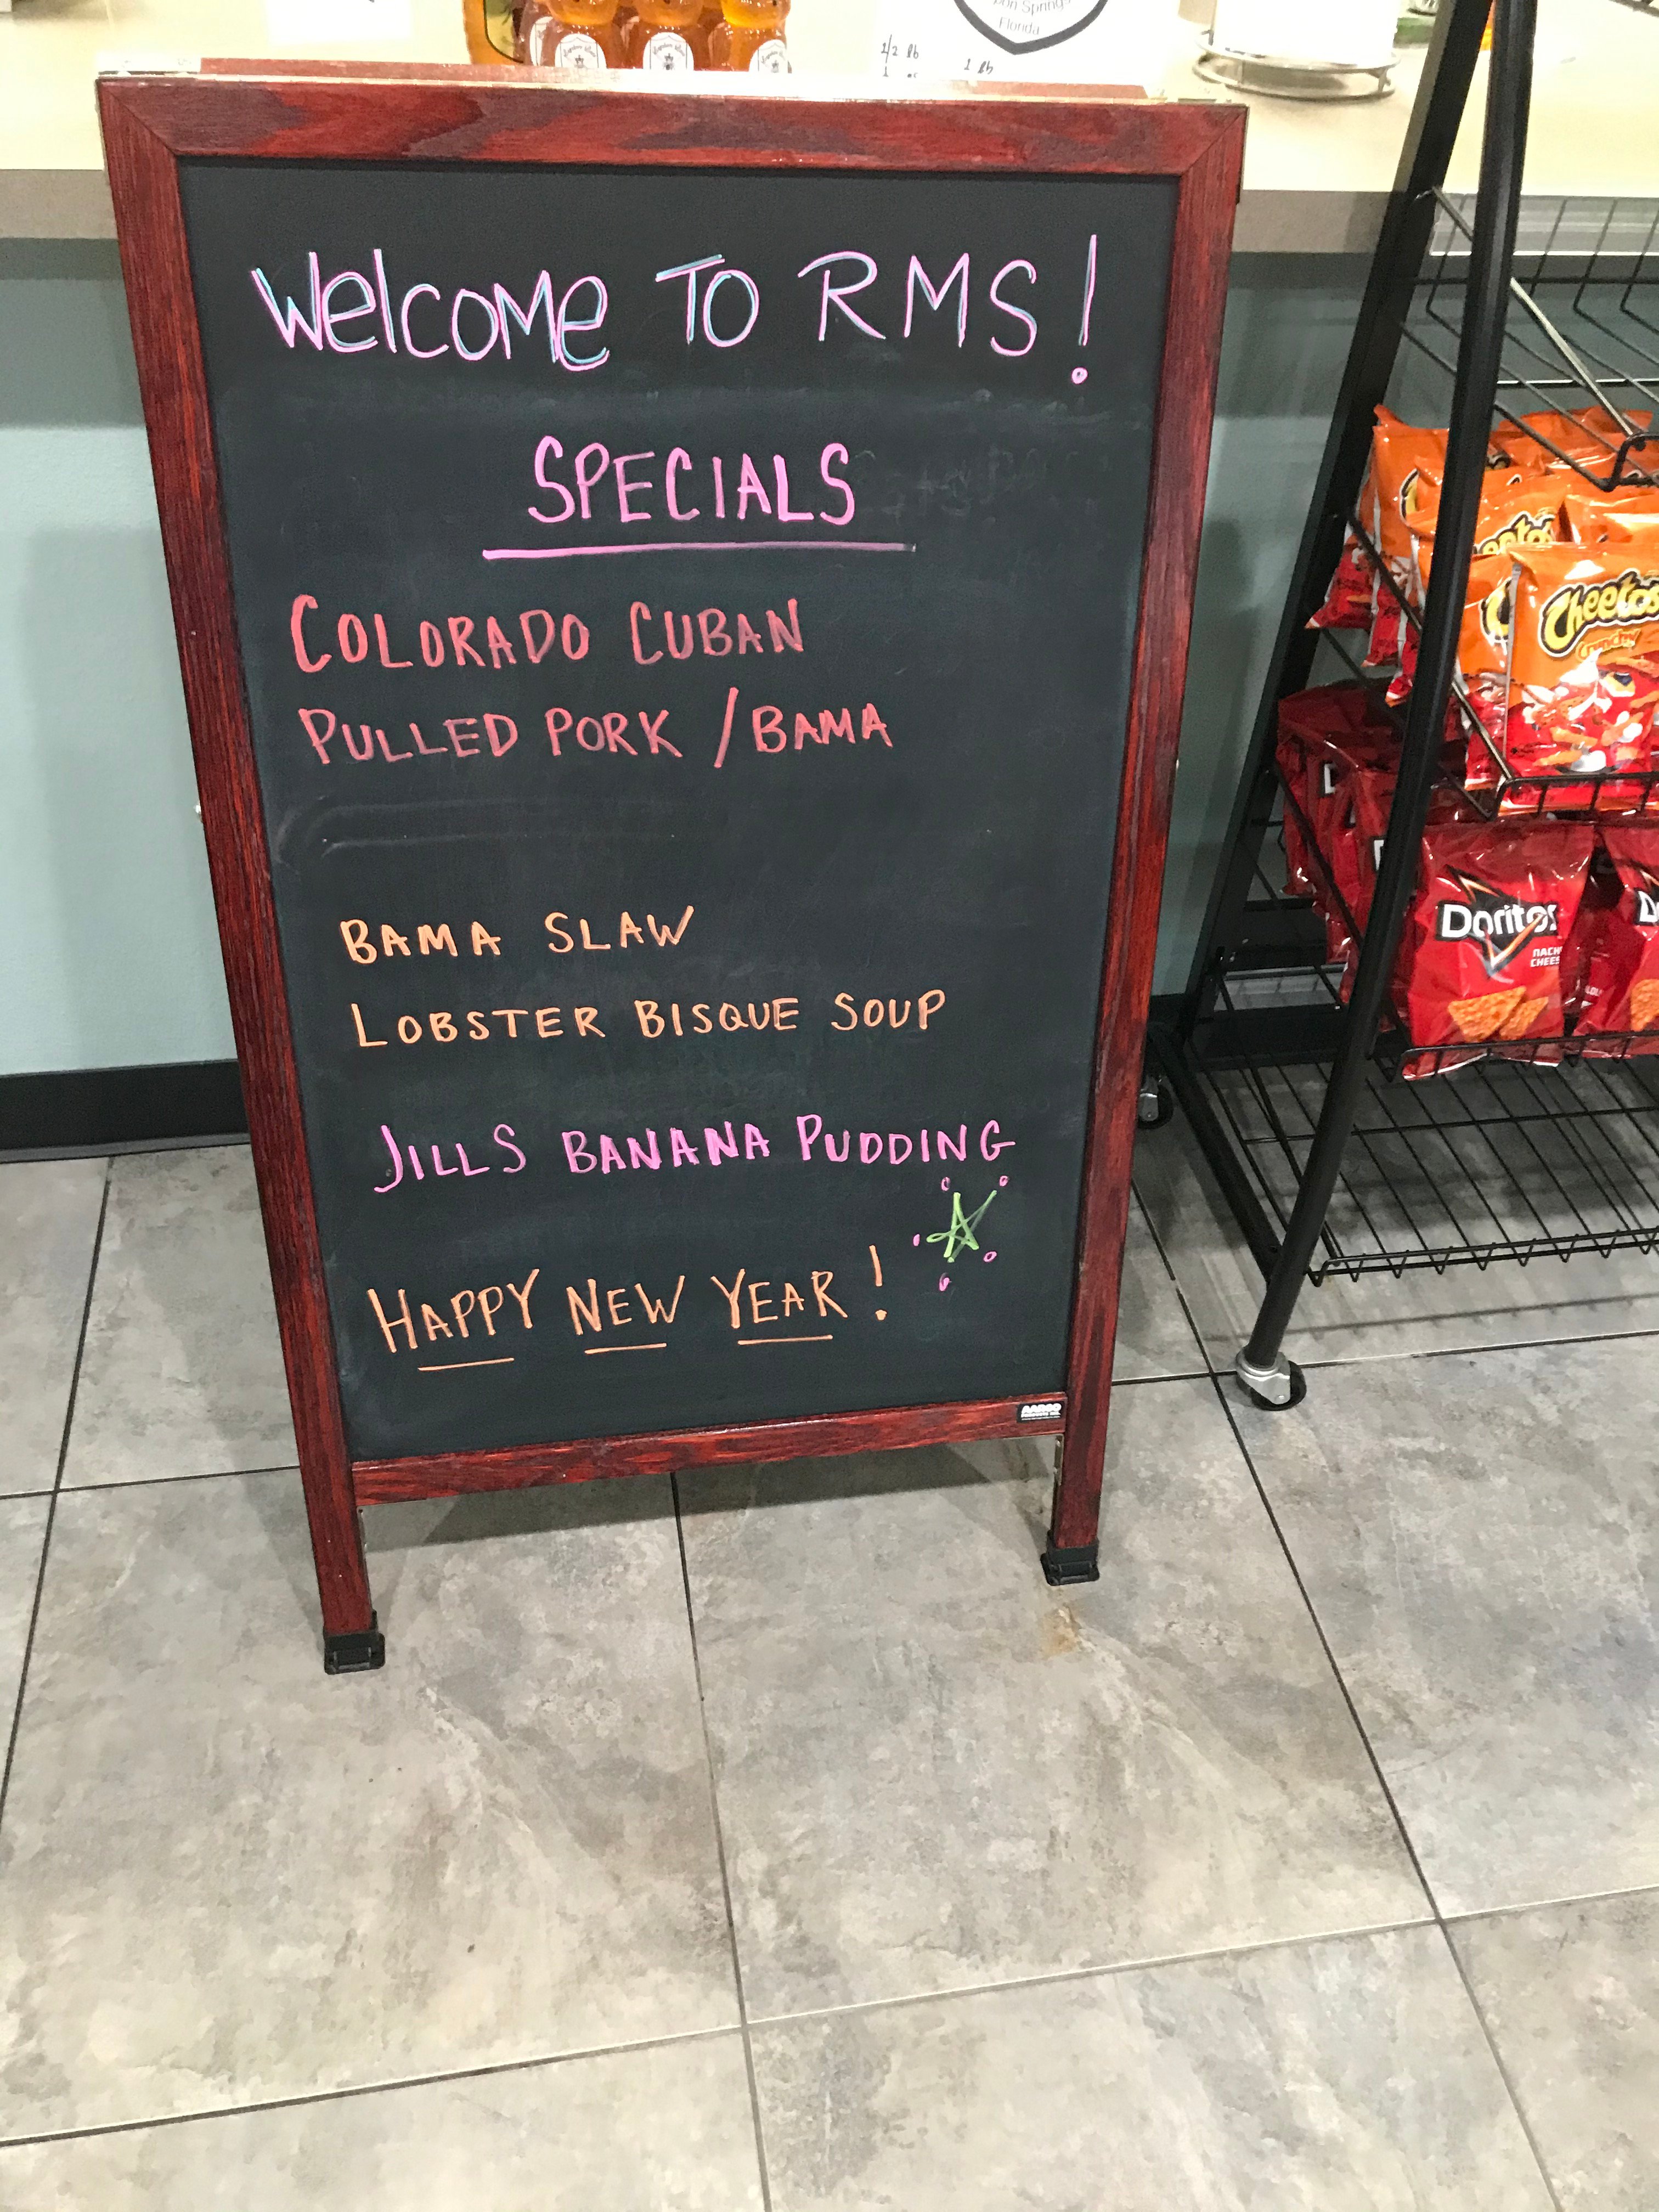 on Springs
Florida
1/2 lb
1 lb
Welcome TO RMS!
SPECIALS
COLORADO CUBAN
PULLED PORK / BAMA
BAMA SLAW
LOBSTER BISQUE SOUP
JILLS BANANA PUDDING
HAPPY NEW YEAR!
AARCO
Cheetos
Crunchy
Cheetos
Doritos
NACH
CHEES
D